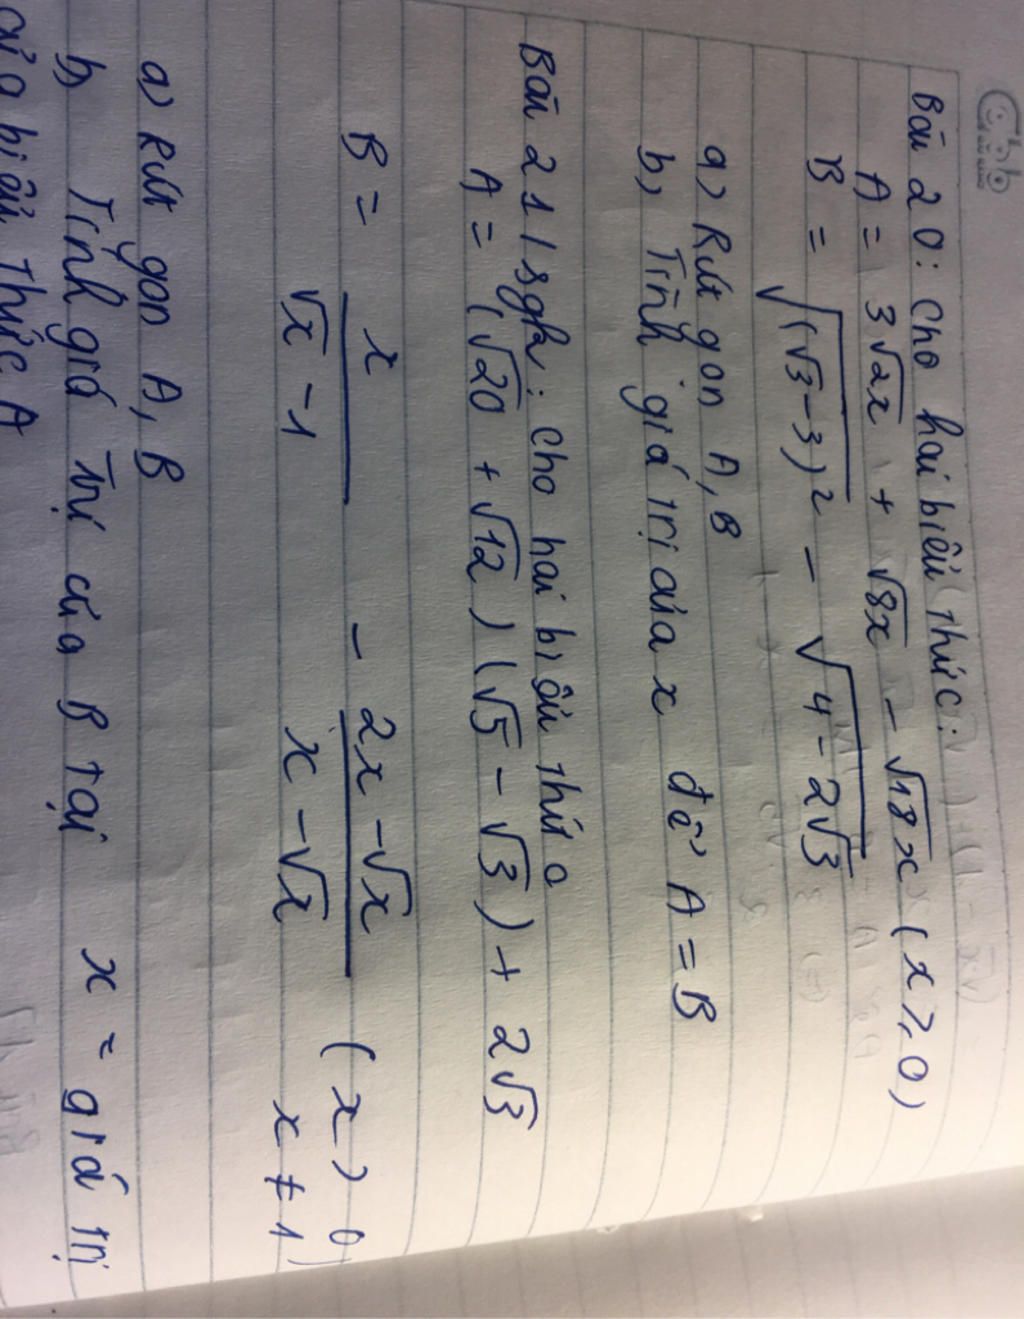 Bài 20: Cho hai biểu thức:
A = 3√2x + √8x - √18x (x ≥ 0)
B = √(√3-3)² - √4-2√3
a) Rút gọn A, B
b) Tính giá trị của x để A = B
Bài 21/sgk: Cho hai biểu thức
A = (√20 + √12)(√5 - √3) + 2√3
B = x/(√x - 1) - (2x - √x)/(x - √x) (x > 0, x ≠ 1)
a) Rút gọn A, B
b) Tính giá trị của B tại x = giá trị
của biểu thức A